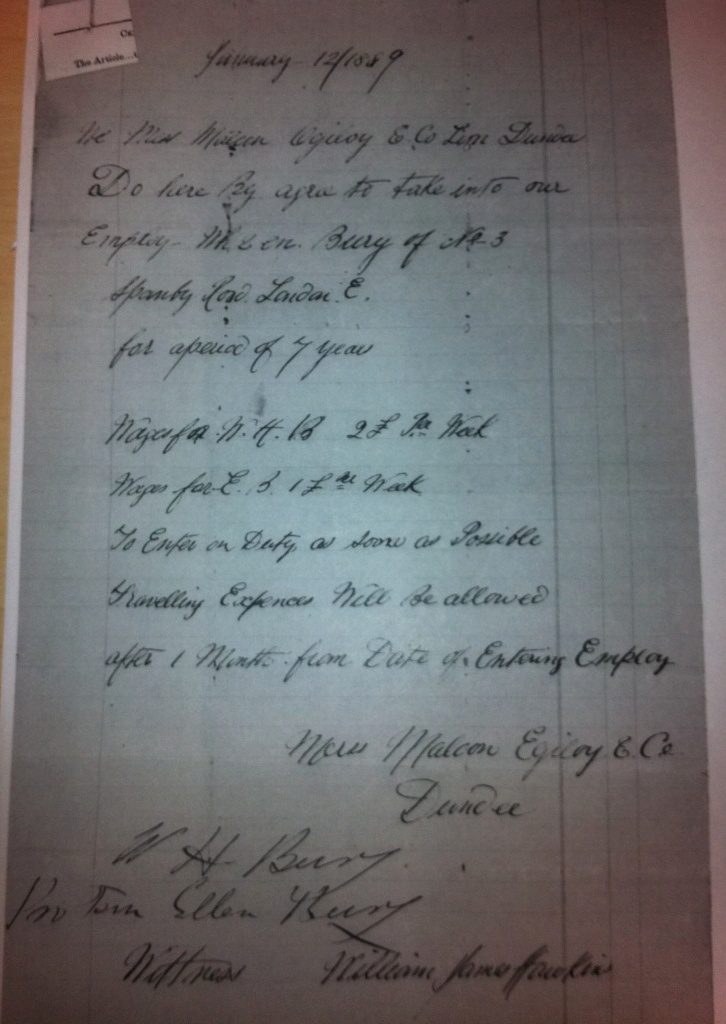 The Article...
January 12/1889
We Mess Malcon Ogilvy & Co Lim Dundee
Do here By agree to take into our
Employ W. H. & en. Bury of No 3
Spanby Road London E.
for a period of 7 years
Wages for W. H. B 2£ Per Week
Wages for E. B. 1£ Per Week
To Enter on Duty as soone as Possible
Travelling Expences Will Be allowed
after 1 Month from Date of Entering Employ
Mess Malcon Egilvy & Co
Dundee
W H Bury
Pro Tem Ellen Bury
Wittness William James Hawkins